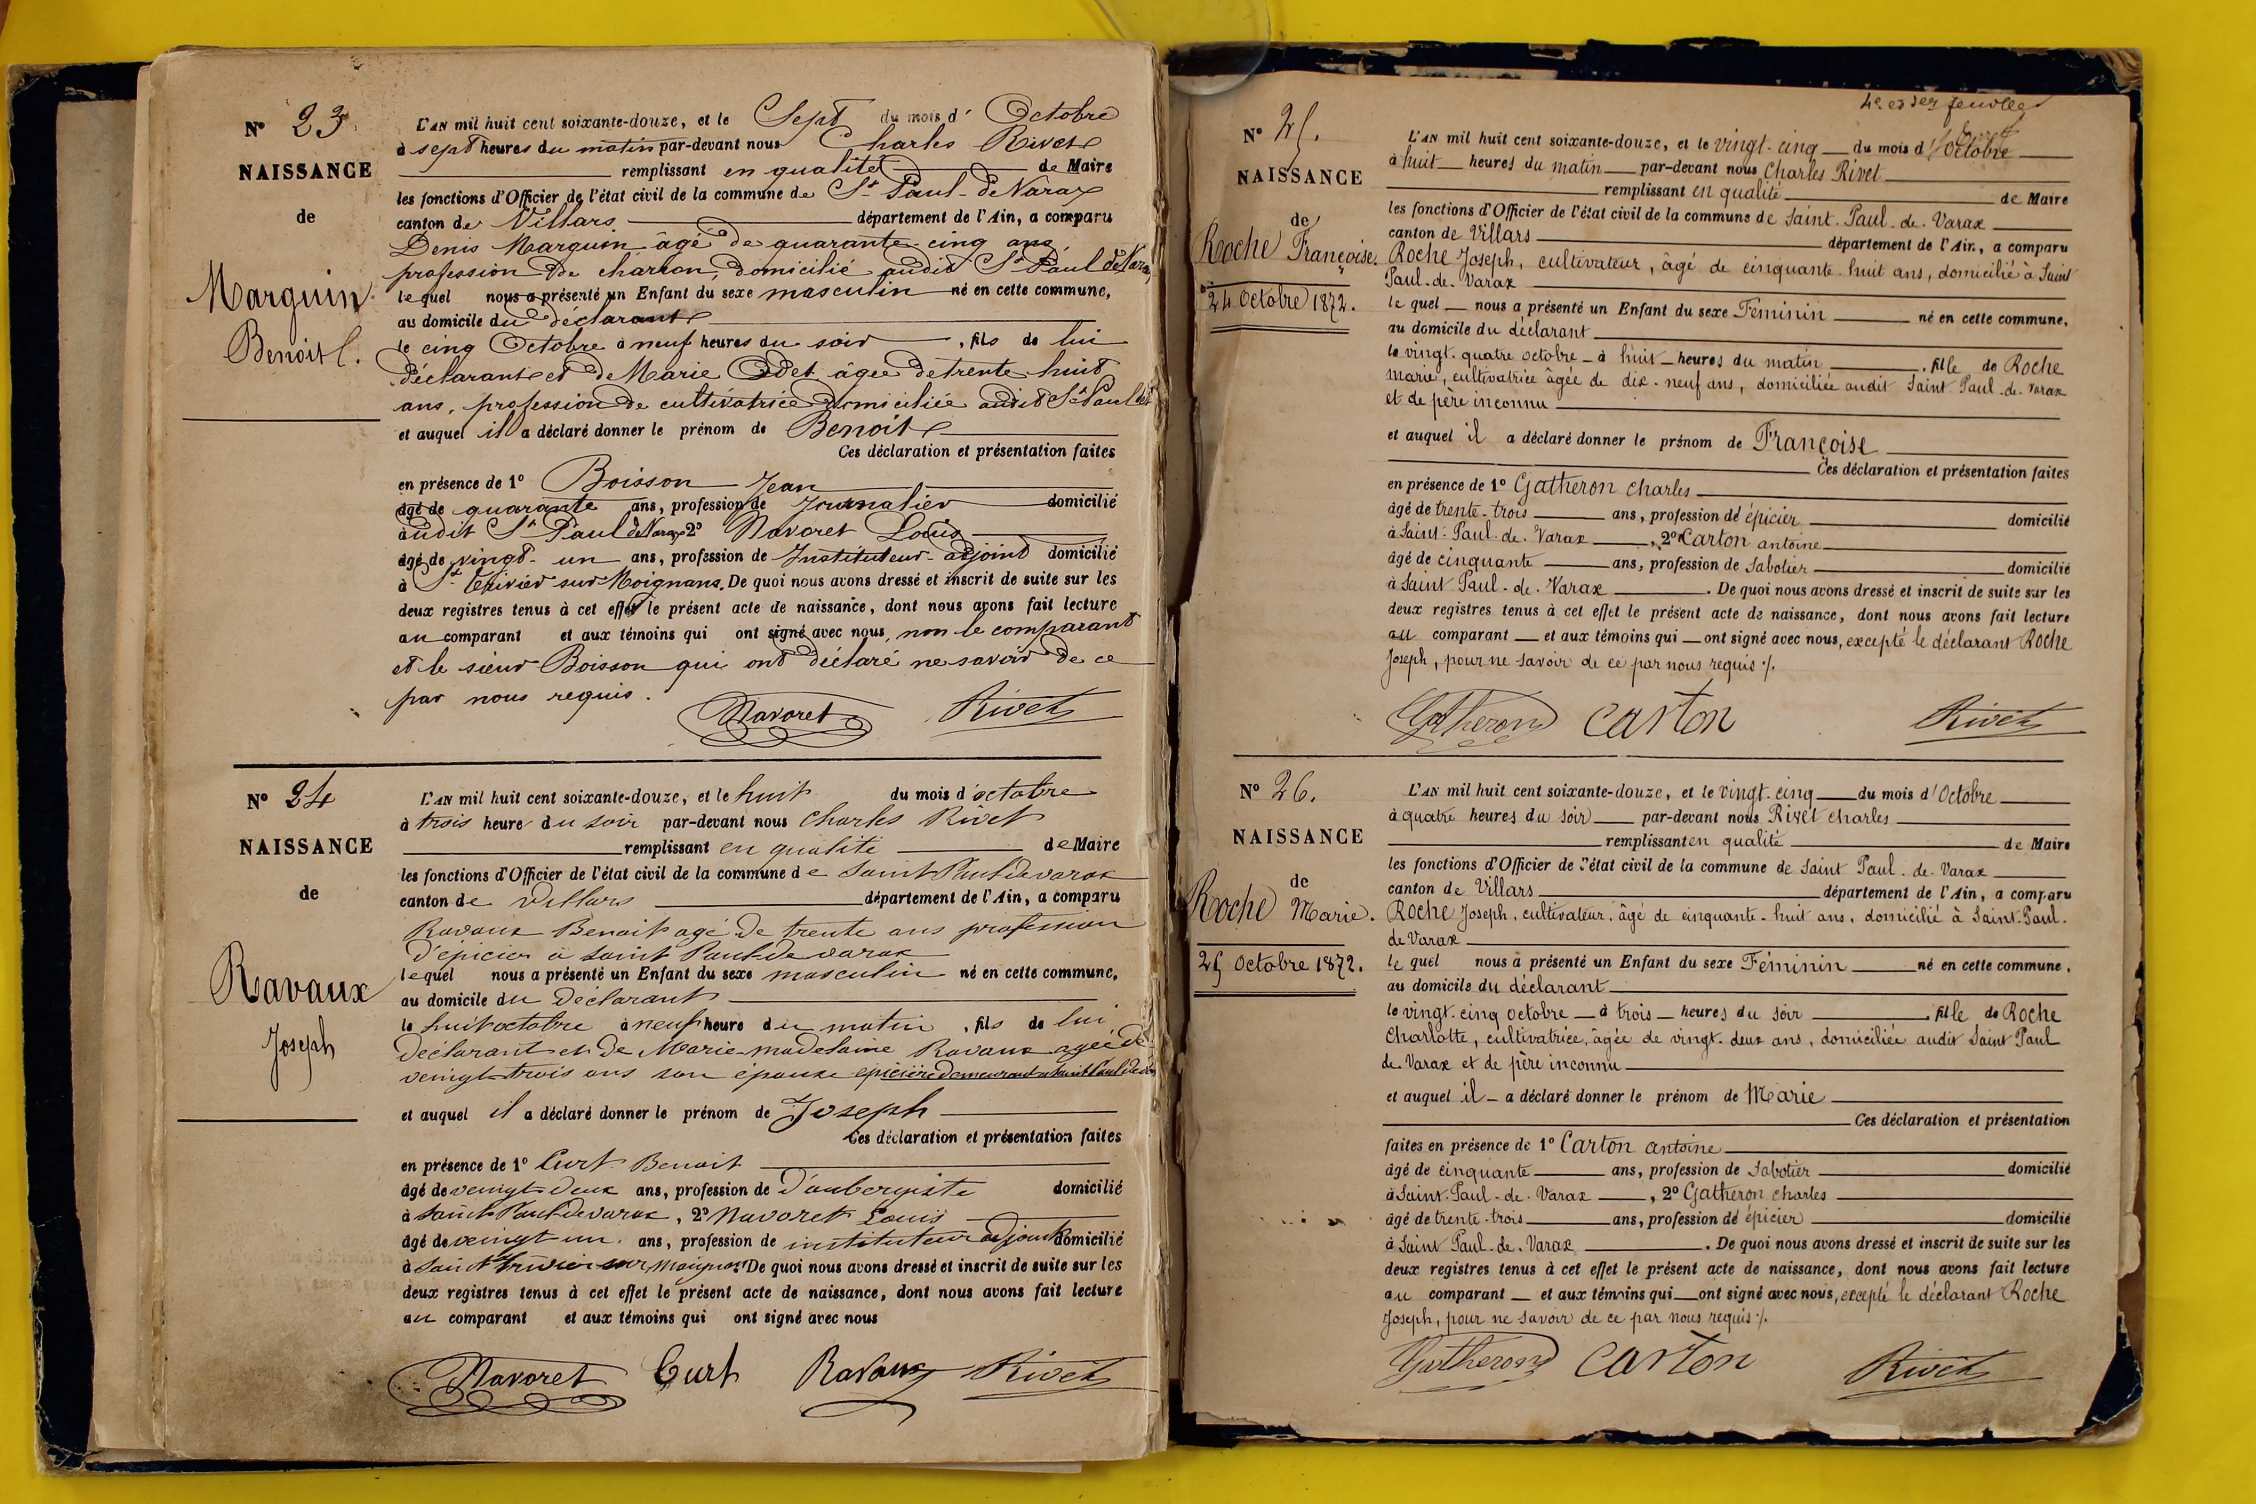 N° 23.
NAISSANCE
de
Marguin
Benoit.
L'AN mil huit cent soixante-douze, et le Sept du mois d' Octobre
à sept heures du matin par-devant nous Charles Rivet
remplissant en qualité de Maire
les fonctions d'Officier de l'état civil de la commune de St Paul de Varax
canton de Villars département de l'Ain, a comparu
Denis Marguin âgé de quarante-cinq ans,
profession de charron, domicilié audit St Paul de Varax
lequel nous a présenté un Enfant du sexe masculin né en cette commune,
au domicile du déclarant
le cinq Octobre à neuf heures du soir, fils de lui
déclarant et de Marie Odet âgée de trente huit
ans, profession de cultivatrice domiciliée audit St Paul
et auquel il a déclaré donner le prénom de Benoit
Ces déclaration et présentation faites
en présence de 1° Boisson Jean
âgé de quarante ans, profession de Journalier domicilié
audit St Paul de Varax 2° Navoret Louis
âgé de vingt-un ans, profession de Instituteur-adjoint domicilié
à St Trivier sur Moignans. De quoi nous avons dressé et inscrit de suite sur les
deux registres tenus à cet effet le présent acte de naissance, dont nous avons fait lecture
au comparant et aux témoins qui ont signé avec nous, non le comparant
et le sieur Boisson qui ont déclaré ne savoir de ce
par nous requis.
Navoret Rivet
N° 24
NAISSANCE
de
Ravaux
Joseph
L'AN mil huit cent soixante-douze, et le huit du mois d'octobre
à trois heure du soir par-devant nous Charles Rivet
remplissant en qualité de Maire
les fonctions d'Officier de l'état civil de la commune de Saint Paul de varax
canton de Villars département de l'Ain, a comparu
Ravaux Benoit agé de trente ans profession
d'épicier à saint Paul de varax
lequel nous a présenté un Enfant du sexe masculin né en cette commune,
au domicile du déclarant
le huit octobre à neuf heure du matin, fils de lui
déclarant et de Marie-madelaine Ravaux agée de
veingt trois ans son épouse epicière demeurant a saint Paul de
et auquel il a déclaré donner le prénom de Joseph
Ces déclaration et présentation faites
en présence de 1° Curt Benoit
âgé de veingt-deux ans, profession de d'aubergiste domicilié
à saint Paul de varax, 2° Navoret Louis
âgé de veingt un ans, profession de instituteur adjoint domicilié
à saint trivier sur moignans De quoi nous avons dressé et inscrit de suite sur les
deux registres tenus à cet effet le présent acte de naissance, dont nous avons fait lecture
au comparant et aux témoins qui ont signé avec nous
Navoret Curt Ravaux Rivet
4e et der feuillet
N° 25.
NAISSANCE
de
Roche Françoise.
24 Octobre 1872.
L'AN mil huit cent soixante-douze, et le vingt-cinq du mois d'Octobre
à huit heures du matin par-devant nous Charles Rivet
remplissant en qualité de Maire
les fonctions d'Officier de l'état civil de la commune de Saint-Paul-de-Varax
canton de Villars département de l'Ain, a comparu
Roche Joseph, cultivateur, âgé de cinquante-huit ans, domicilié à Saint
Paul-de-Varax
le quel nous a présenté un Enfant du sexe Féminin né en cette commune,
au domicile du déclarant
le vingt-quatre octobre à huit heures du matin, fille de Roche
Marie, cultivatrice âgée de dix-neuf ans, domiciliée audit Saint Paul-de-Varax
et de père inconnu
et auquel il a déclaré donner le prénom de Françoise
Ces déclaration et présentation faites
en présence de 1° Gatheron Charles
âgé de trente-trois ans, profession de épicier domicilié
à Saint-Paul-de-Varax, 2° Carton antoine
âgé de cinquante ans, profession de Sabotier domicilié
à Saint Paul-de-Varax. De quoi nous avons dressé et inscrit de suite sur les
deux registres tenus à cet effet le présent acte de naissance, dont nous avons fait lecture
au comparant et aux témoins qui ont signé avec nous, excepté le déclarant Roche
Joseph, pour ne savoir de ce par nous requis ./.
Gatheron Carton Rivet
N° 26.
NAISSANCE
de
Roche Marie.
25 Octobre 1872.
L'AN mil huit cent soixante-douze, et le vingt-cinq du mois d'Octobre
à quatre heures du soir par-devant nous Rivet Charles
remplissant en qualité de Maire
les fonctions d'Officier de l'état civil de la commune de Saint Paul-de-Varax
canton de Villars département de l'Ain, a comparu
Roche Joseph, cultivateur, âgé de cinquante-huit ans, domicilié à Saint-Paul-
de Varax
le quel nous a présenté un Enfant du sexe Féminin né en cette commune,
au domicile du déclarant
le vingt-cinq octobre à trois heures du soir, fille de Roche
Charlotte, cultivatrice, âgée de vingt-deux ans, domiciliée audit Saint Paul
de Varax et de père inconnu
et auquel il a déclaré donner le prénom de Marie
Ces déclaration et présentation
faites en présence de 1° Carton antoine
âgé de cinquante ans, profession de Sabotier domicilié
à Saint-Paul-de-Varax, 2° Gatheron Charles
âgé de trente-trois ans, profession de épicier domicilié
à Saint Paul-de-Varax. De quoi nous avons dressé et inscrit de suite sur les
deux registres tenus à cet effet le présent acte de naissance, dont nous avons fait lecture
au comparant et aux témoins qui ont signé avec nous, excepté le déclarant Roche
Joseph, pour ne savoir de ce par nous requis ./.
Gatheron Carton Rivet